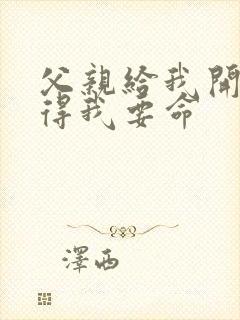 父親給我開
得我要命
澤西